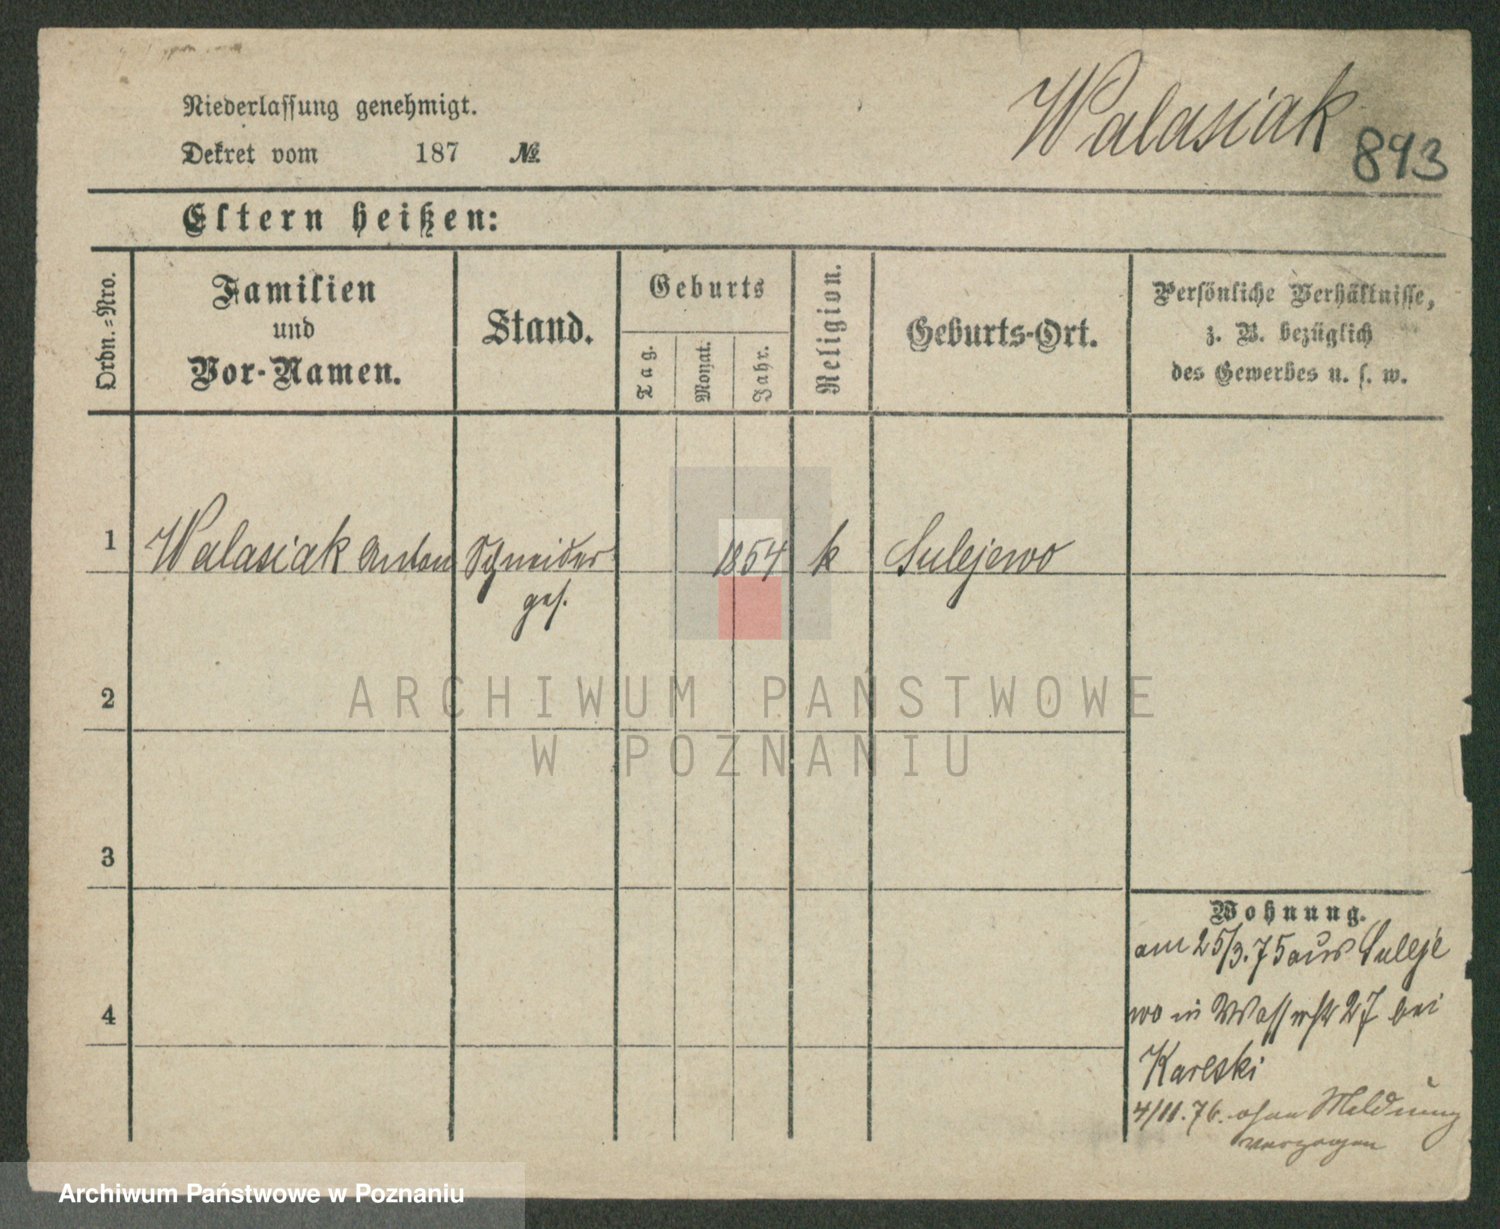 Niederlassung genehmigt.
Walasiak
Dekret vom 187 №
893
Eltern heißen:
Ordn.=Nro.
Familien
und
Vor-Namen.
Stand.
Geburts
Tag.
Monat.
Jahr.
Religion.
Geburts-Ort.
Persönliche Verhältnisse,
z. B. bezüglich
des Gewerbes u. s. w.
1 Walasiak Anton Schneider 1854 k Sulejewo
ges.
2
3
4
Wohnung.
am 25/3.75 aus Suleje
wo in Wasserstr 27 bei
Karlski
4/11.76. ohne Meldung
verzogen
ARCHIWUM PAŃSTWOWE
W POZNANIU
Archiwum Państwowe w Poznaniu